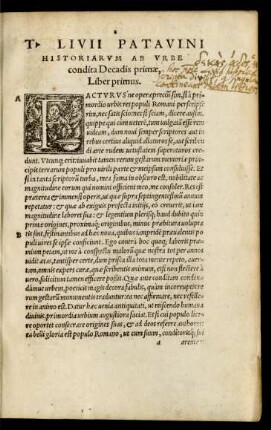 T. LIVII PATAVINI
HISTORIARVM AB VRBE
condita Decadis primæ,
Liber primus.
A
FACTVRVS ne opere precium sim, si à pri
mordio urbis res populi Romani perscripse
rim, nec satis scio: nec si sciam, dicere ausim.
quippe qui cum ueterē, tum uulgatā esse rem
uideam, dum noui semper scriptores aut in
rebus certius aliquid allaturos se, aut scriben
di arte rudem uetustatem superaturos cre
dunt. Vtcunq; erit, iuuabit tamen rerum gestarum memoriæ prin
cipis terrarum populi pro uirili parte & me ipsum consuluisse. Et
si in tanta scriptorū turba, mea fama in obscuro est, nobilitate ac
magnitudine eorum qui nomini officient meo, me consoler. Res est
præterea & immensi operis, ut quæ supra septingentesimū annum
repetatur: & quæ ab exiguis profecta initijs, eò creuerit, ut iam
magnitudine laboret sua: & legentium plerisq; haud dubito quin
primæ origines, proximaq; originibus, minus præbitura uolupta
B
tis sint, festinantibus ad hæc noua, quibus iampridē præualentis po
puli uires se ipsæ conficiunt. Ego contrà hoc quoq; laboris præ
mium petam, ut me à conspectu malorū quæ nostra tot per annos
uidit ætas, tantisper certè, dum prisca illa tota mente repeto, auer-
tam, omnis expers curæ, quæ scribentis animum, etsi non flectere à
uero, sollicitum tamen efficere possit. Quæ ante conditam conden
dámue urbem, poeticis magis decora fabulis, quàm incorruptis re
rum gestarū monumentis traduntur ea nec affirmare, nec refelle-
re in animo est. Datur hæc uenia antiquitati, ut miscendo humana
diuinis, primordia urbium augustiora faciat. Et si cui populo lice
re oportet consecrare origines suas, & ad deos referre authores:
ea belli gloria est populo Romano, ut cum suum, conditorisq́; sui
a